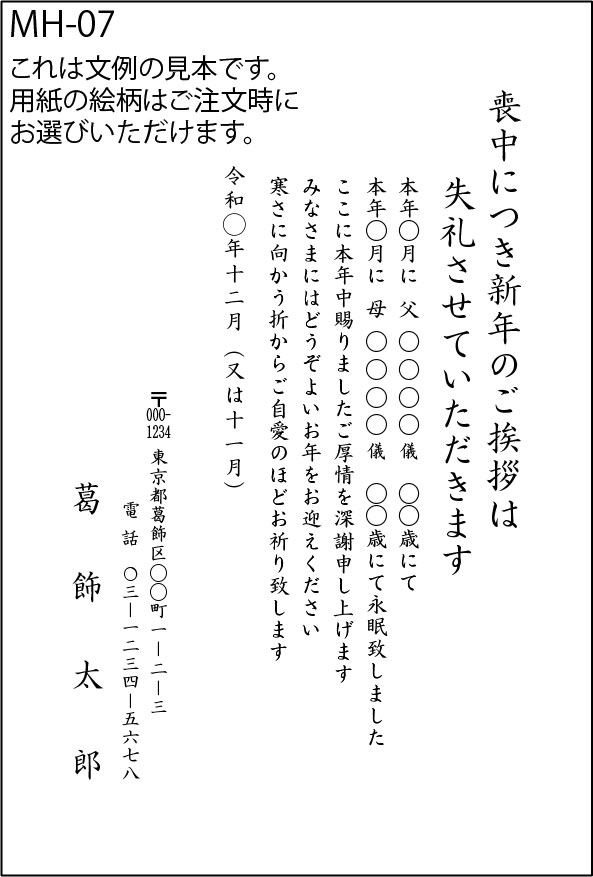 MH-07
これは文例の見本です。
用紙の絵柄はご注文時に
お選びいただけます。
喪中につき新年のご挨拶は
失礼させていただきます
本年〇月に 父 〇〇〇〇儀 〇〇歳にて
本年〇月に 母 〇〇〇〇儀 〇〇歳にて永眠致しました
ここに本年中賜りましたご厚情を深謝申し上げます
みなさまにはどうぞよいお年をお迎えください
寒さに向かう折からご自愛のほどお祈り致します
令和〇年十二月（又は十一月）
〒000-1234 東京都葛飾区〇〇町一―二―三
電話 〇三―一二三四―五六七八
葛飾太郎